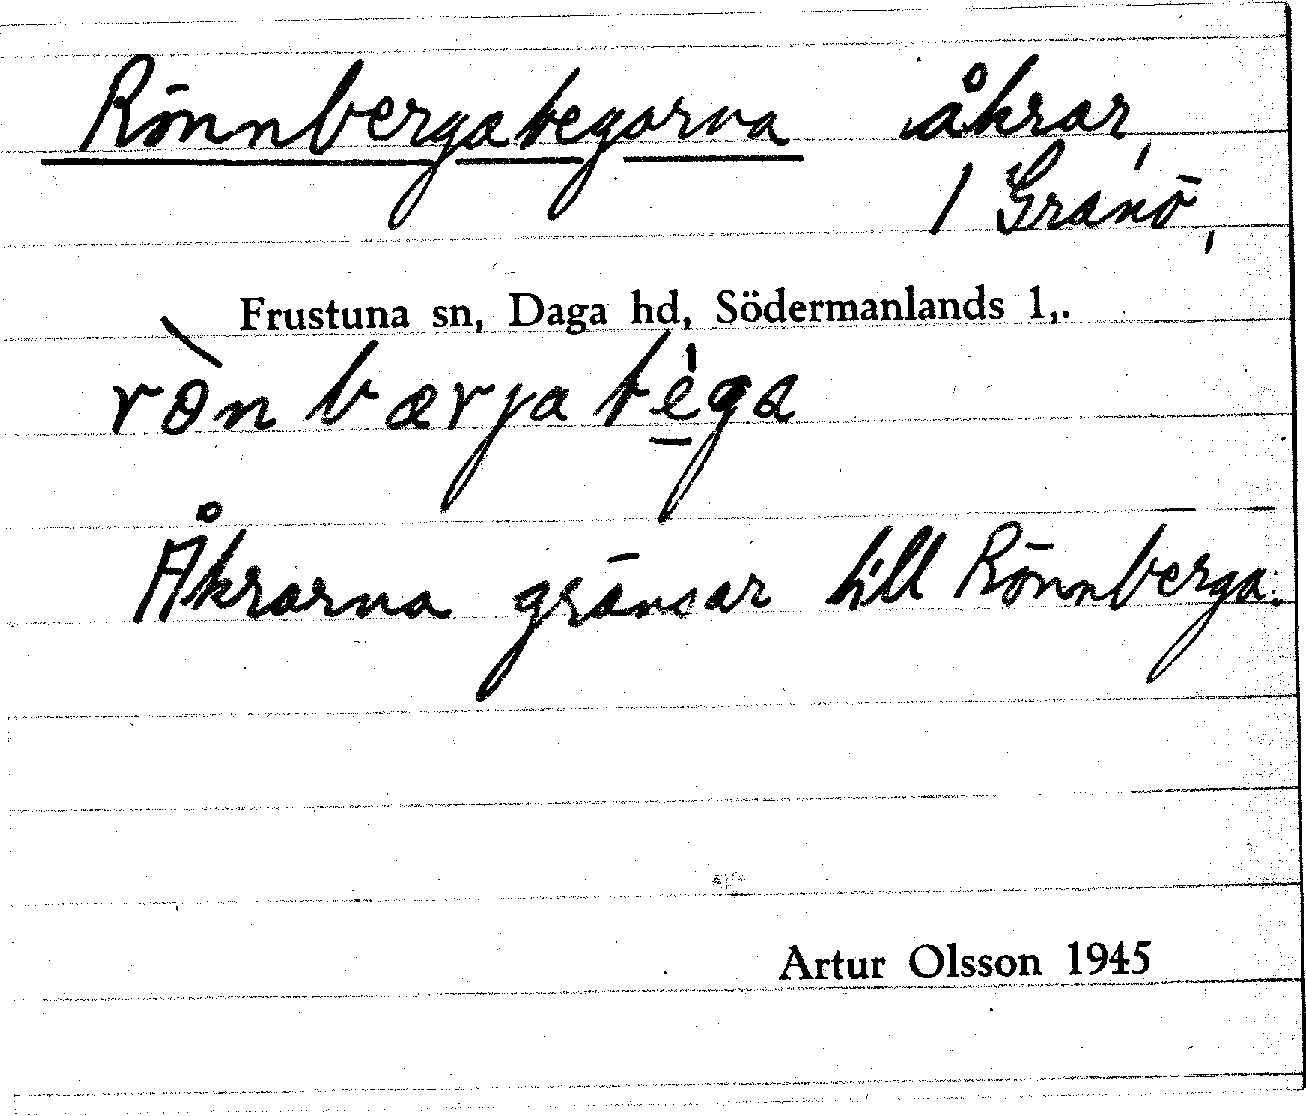 Rönnbergategarna åkrar,
1 Granö,
Frustuna sn, Daga hd, Södermanlands l,.
rònbærjatega
Åkrarna gränsar till Rönnberga.
Artur Olsson 1945